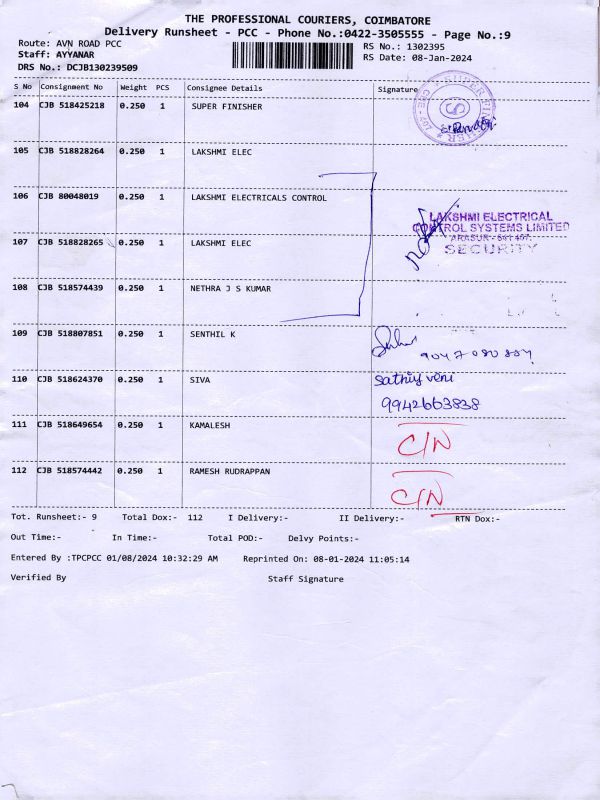 THE PROFESSIONAL COURIERS, COIMBATORE
Delivery Runsheet - PCC - Phone No.:0422-3505555 - Page No.:9
Route: AVN ROAD PCC
RS No.: 1302395
Staff: AYYANAR
RS Date: 08-Jan-2024
DRS No.: DCJB130239509
S No Consignment No Weight PCS Consignee Details Signature
104 CJB 518425218 0.250 1 SUPER FINISHER
105 CJB 518828264 0.250 1 LAKSHMI ELEC
106 CJB 80048019 0.250 1 LAKSHMI ELECTRICALS CONTROL
LAKSHMI ELECTRICAL
CONTROL SYSTEMS LIMITED
ARASUR - 641 407.
SECURITY
107 CJB 518828265 0.250 1 LAKSHMI ELEC
108 CJB 518574439 0.250 1 NETHRA J S KUMAR
109 CJB 518807851 0.250 1 SENTHIL K
110 CJB 518624370 0.250 1 SIVA
sathiyveni
9942663838
111 CJB 518649654 0.250 1 KAMALESH
C/N
112 CJB 518574442 0.250 1 RAMESH RUDRAPPAN
C/N
Tot. Runsheet:- 9 Total Dox:- 112 I Delivery:- II Delivery:- RTN Dox:-
Out Time:- In Time:- Total POD:- Delvy Points:-
Entered By :TPCPCC 01/08/2024 10:32:29 AM Reprinted On: 08-01-2024 11:05:14
Verified By Staff Signature